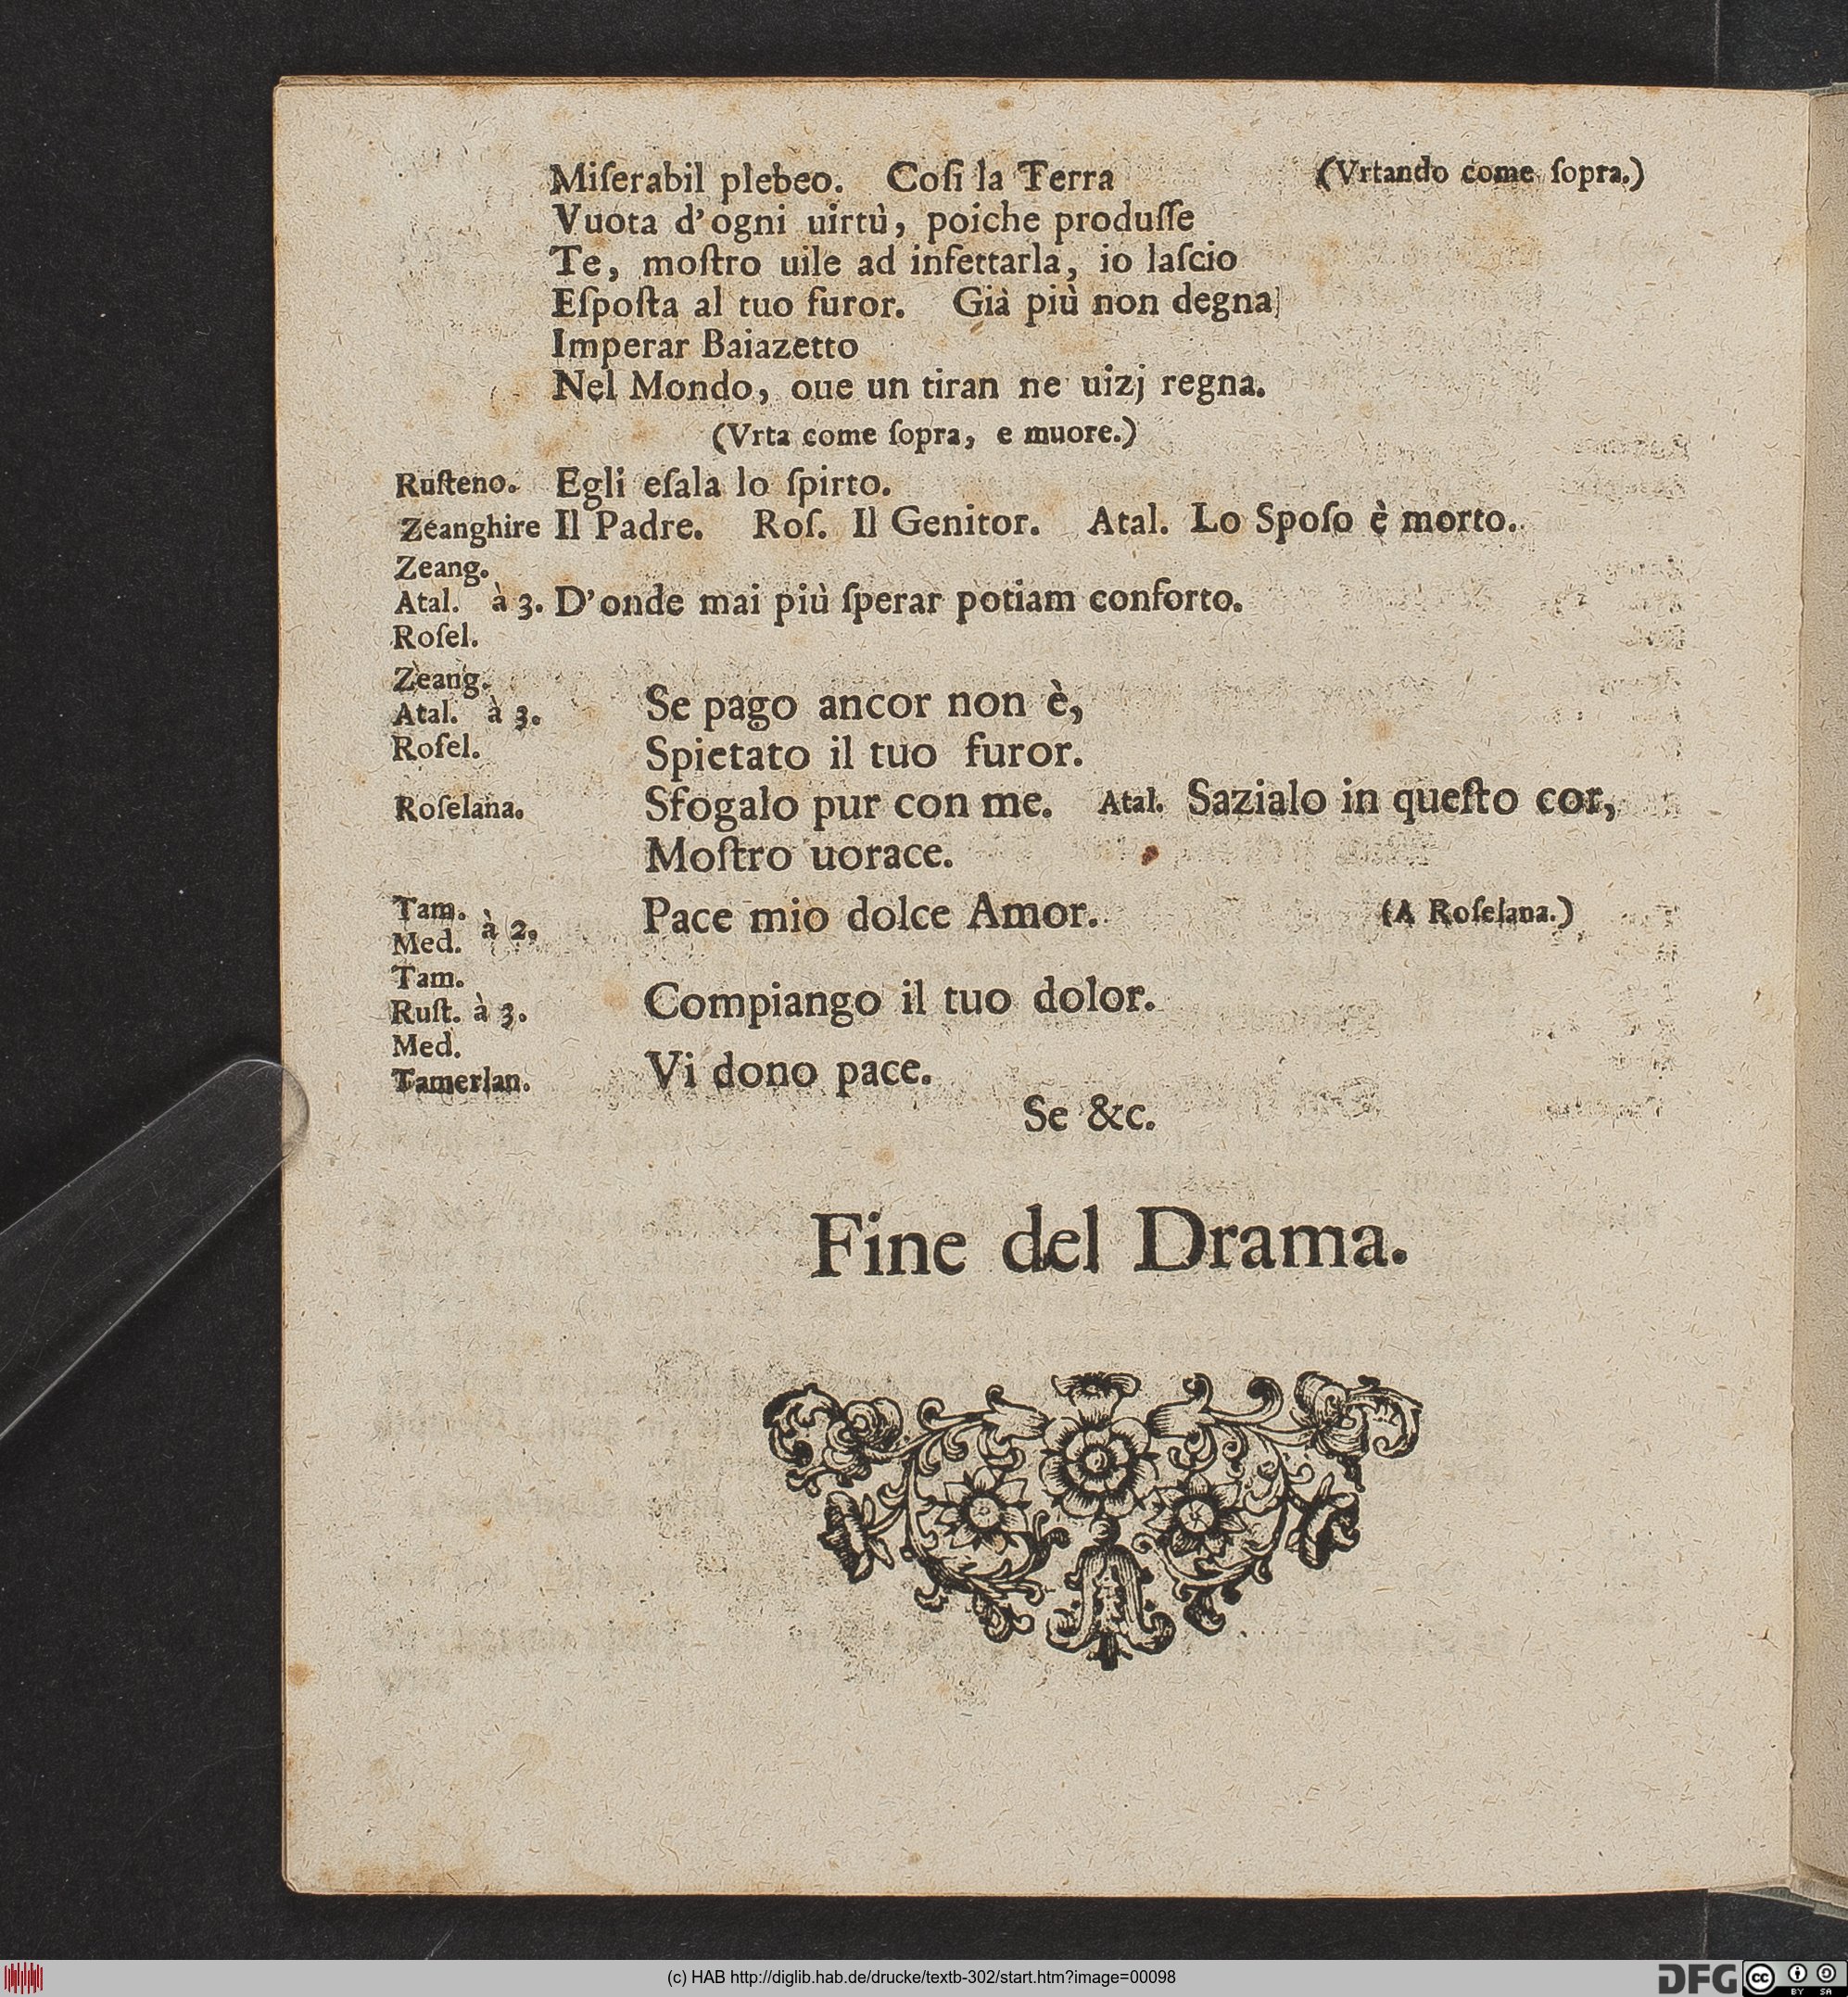 Miſerabil plebeo. Coſi la Terra (Vrtando come ſopra.)
Vuota d'ogni uirtù, poiche produſſe
Te, moſtro uile ad infettarla, io laſcio
Eſpoſta al tuo furor. Già più non degna
Imperar Baiazetto
Nel Mondo, oue un tiran ne uizj regna.
(Vrta come ſopra, e muore.)
Ruſteno. Egli eſala lo ſpirto.
Zeanghire Il Padre. Roſ. Il Genitor. Atal. Lo Spoſo è morto.
Zeang.
Atal. à 3. D'onde mai più ſperar potiam conforto.
Roſel.
Zeang.
Atal. à 3. Se pago ancor non è,
Roſel. Spietato il tuo furor.
Roſelana. Sfogalo pur con me. Atal. Sazialo in queſto cor,
Moſtro uorace.
Tam.
Med. à 2. Pace mio dolce Amor. (A Roſelana.)
Tam.
Ruſt. à 3. Compiango il tuo dolor.
Med.
Tamerlan. Vi dono pace.
Se &c.
Fine del Drama.
(c) HAB http://diglib.hab.de/drucke/textb-302/start.htm?image=00098
DFG
cc
BY SA